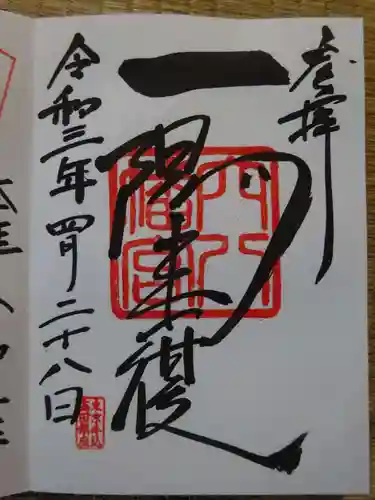 奉拝
一陽来復
穴八幡宮
令和三年四月二十八日